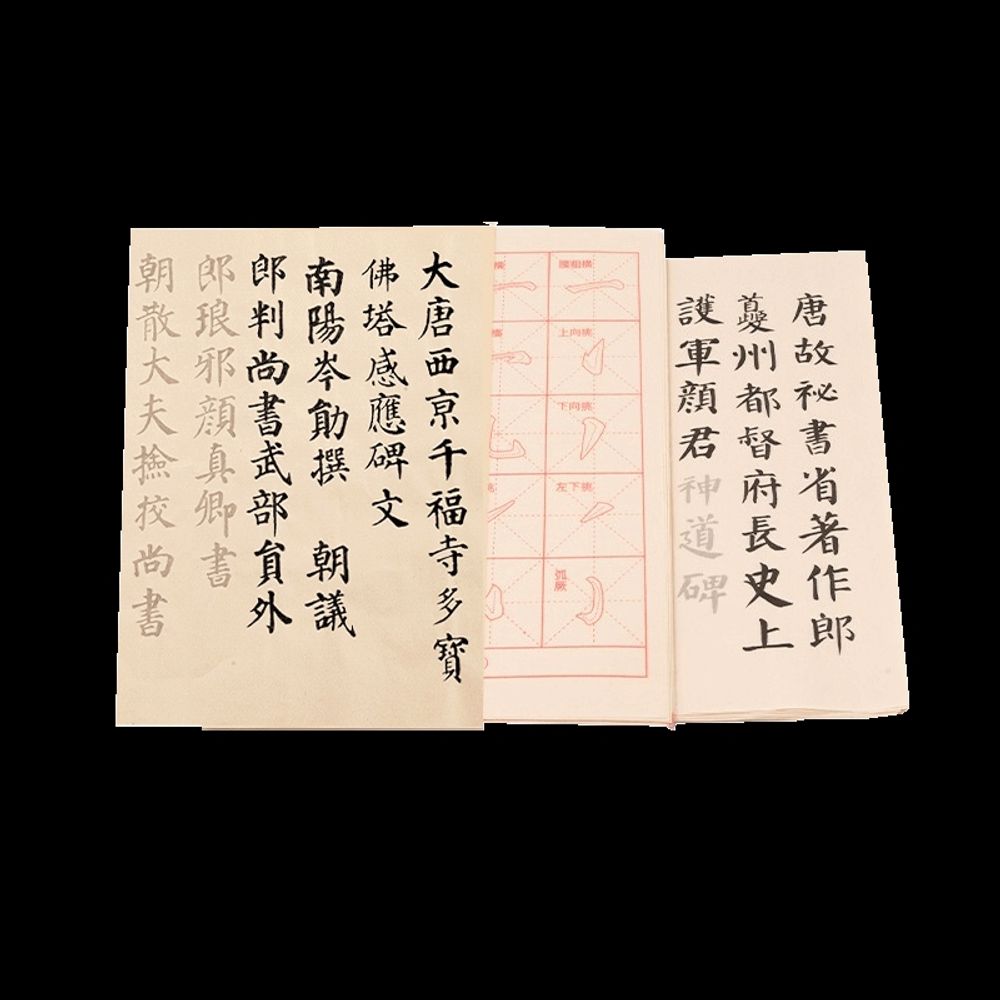 大唐西京千福寺多寶
佛塔感應碑文
南陽岑勛撰 朝議
郎判尚書武部員外
郎琅邪顏真卿書
朝散大夫撿挍尚書
腰粗橫
上向挑
下向挑
左下挑
弧厥
唐故祕書省著作郎
夔州都督府長史上
護軍顏君神道碑